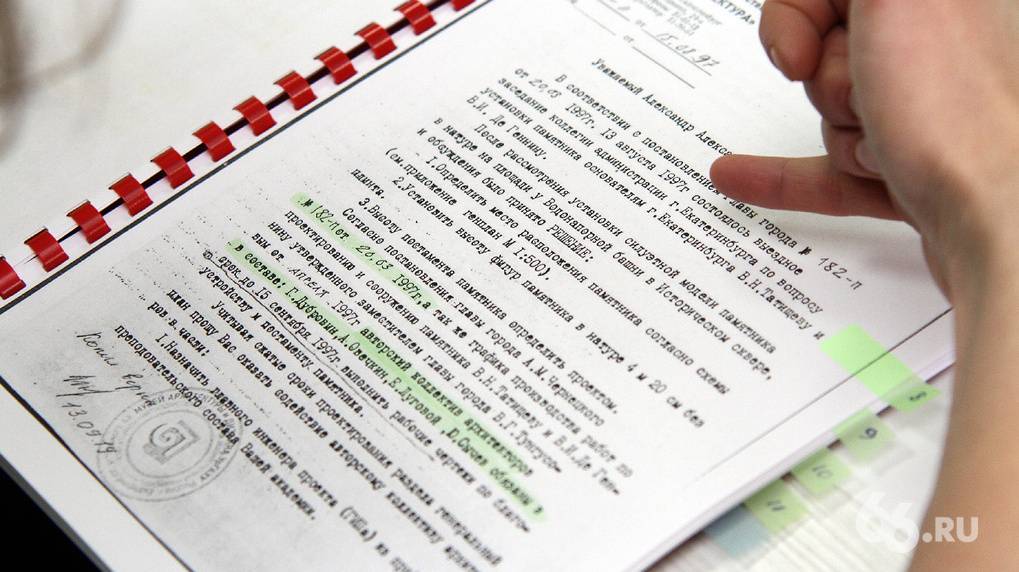 КТУРА"
от 15.08.97
Уважаемый Александр Алекса
В соответствии с постановлением главы города № 182-п
от 26.05 1997г. 13 августа 1997г. состоялось выездное
заседание коллегии администрации г.Екатеринбурга по вопросу
установки памятника основателям г.Екатеринбурга В.Н.Татищеву и
В.И. Де Геннину.
После рассмотрения установки силуэтной модели памятника
в натуре на площади у Водонапорной башни в Историческом сквере,
и обсуждения было принято РЕШЕНИЕ:
1.Определить место расположения памятника согласно схемы
(см.приложение генплан М 1:500).
2.Установить высоту фигур памятника в натуре 4 м 20 см без
плинта.
3.Высоту постамента памятника определить проектом.
Согласно постановления главы города А.М.Чернецкого
№ 182 от 26.05 1997г.а так же графика производства работ по
проектированию и сооружению памятника В.Н.Татищеву и В.И.Де Ген-
нину утвержденного заместителем главы города В.Г.
вым от 1997г. авторский коллектив архитекторов
в составе: Г.Дубровин,А.Оленкин,Е.Дуговой,Ю.Сычев обязаны в
срок до 15 сентября 1997г. выполнить рабочие чертежи по благо-
устройству и постаменту памятника.
Учитывая сжатые сроки проектирования раздела генеральный
план прошу Вас оказать содействие авторскому коллективу архитекто-
ров в части:
1.Назначить главного инженера проекта (ГИПа) из
преподавательского состава Вашей академии.
13.09.19
8
9
10
11
66.RU